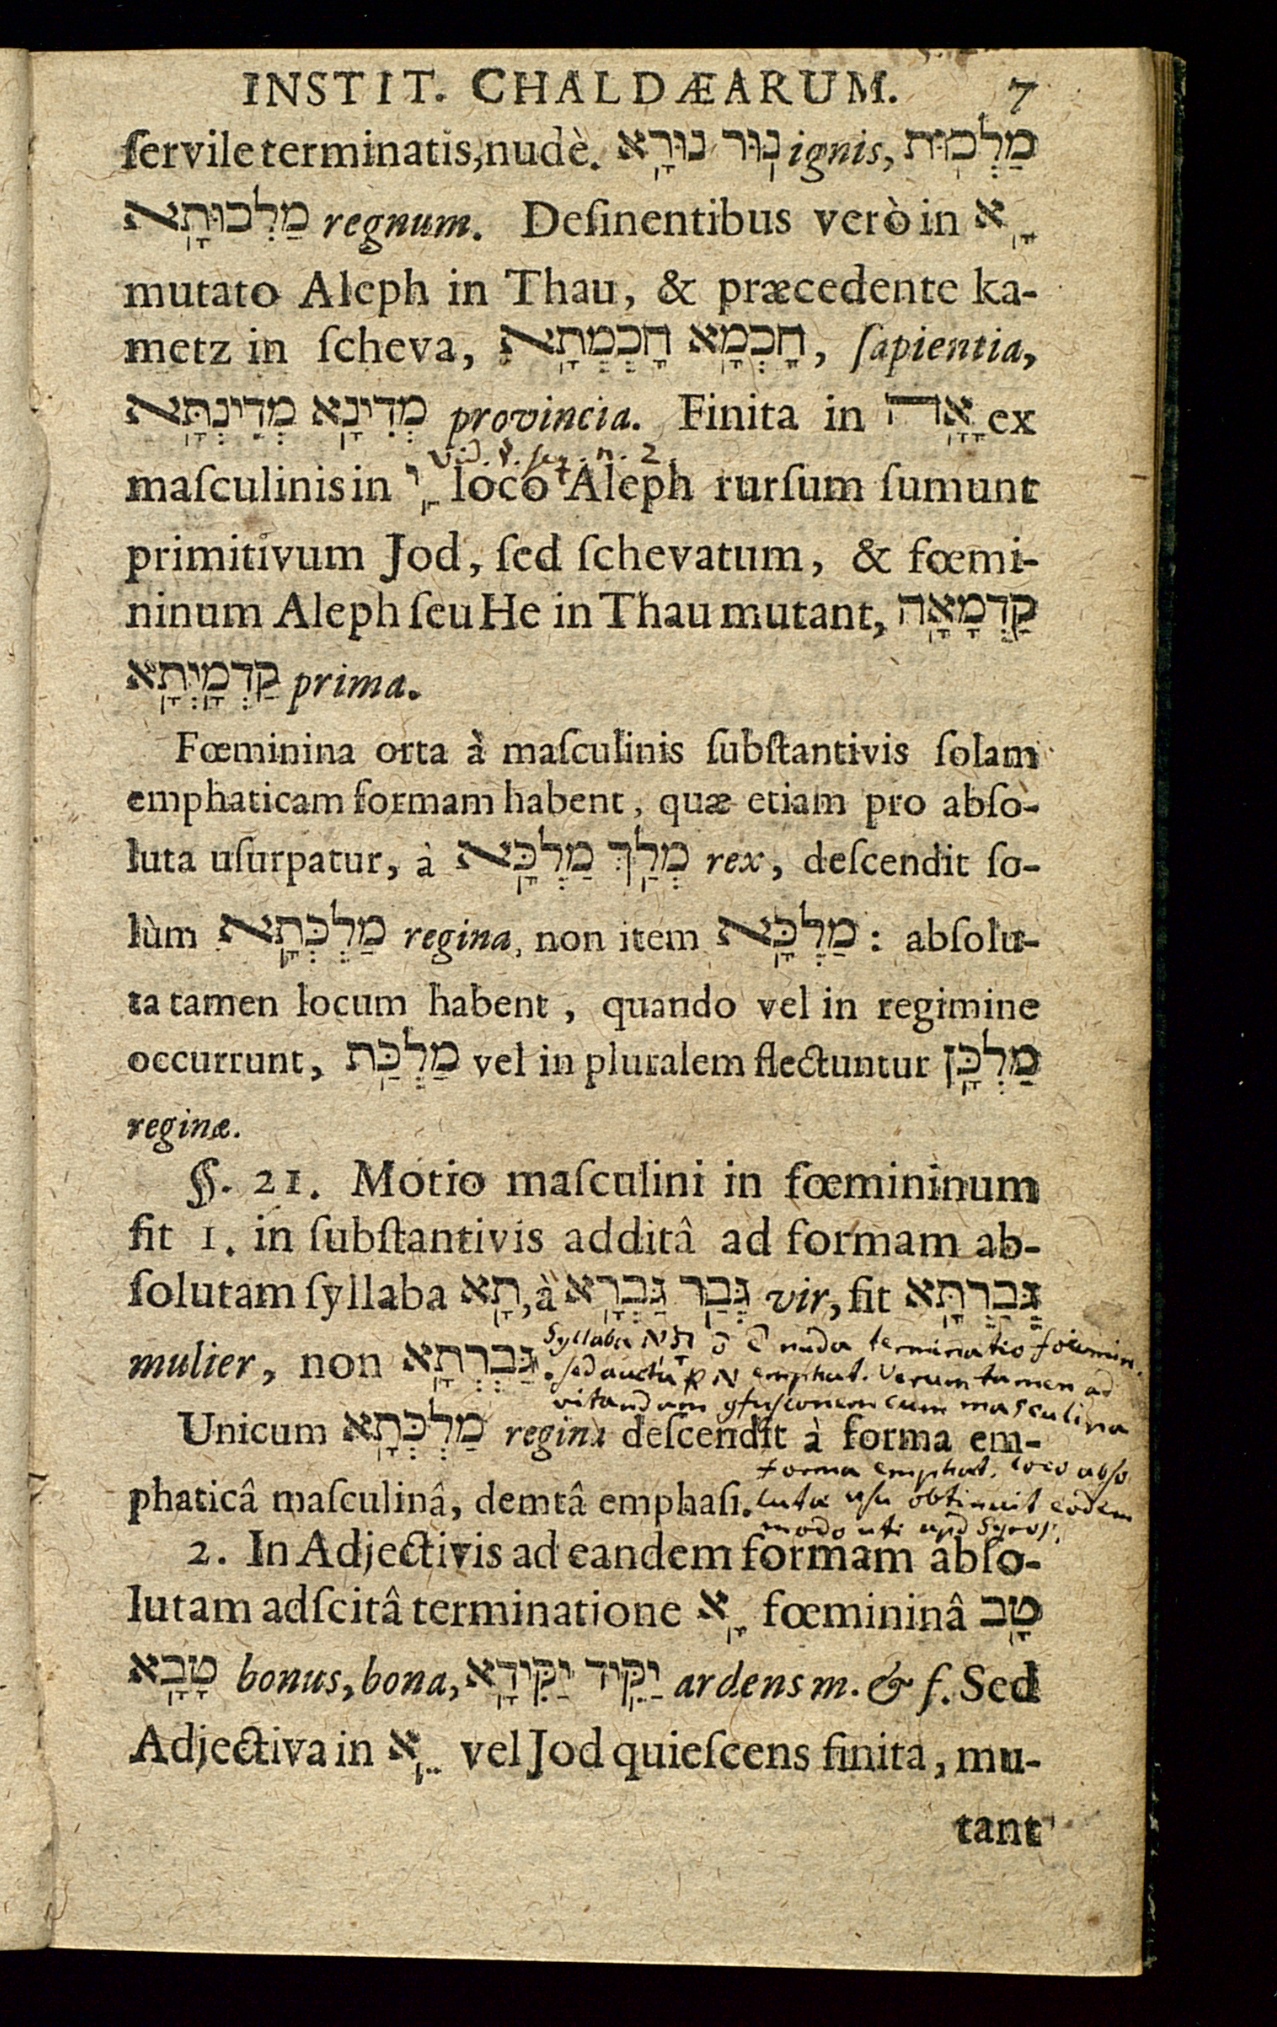 INSTIT. CHALDÆARUM. 7
ſervile terminatis, nudè. נוּר נוּרָא ignis, מַלְכוּת
מַלְכוּתָא regnum. Deſinentibus verò in ָא
mutato Aleph in Thau, & præcedente ka-
metz in ſcheva, חָכְמָא חָכְמְתָא, ſapientia,
מְדִינָא מְדִינְתָּא provincia. Finita in אָה ex
maſculinis in ַי loco Aleph rurſum ſumunt
primitivum Jod, ſed ſchevatum, & fœmi-
ninum Aleph ſeu He in Thau mutant, קַדְמָאָה
קַדְמָיְתָא prima.
Fœminina orta à maſculinis ſubſtantivis ſolam
emphaticam formam habent, quæ etiam pro abſo-
luta uſurpatur, à מְלַךְ מַלְכָּא rex, deſcendit ſo-
lùm מַלְכְּתָא regina, non item מַלְכָּא : abſolu-
ta tamen locum habent, quando vel in regimine
occurrunt, מַלְכַּת vel in pluralem flectuntur מַלְכָּן
reginæ.
§. 21. Motio maſculini in fœmininum
fit 1. in ſubſtantivis additâ ad formam ab-
ſolutam ſyllaba תָא, à גְּבַר גַּבְרָא vir, fit גְּבַרְתָּא
mulier, non גַּבְרְתָא.
Syllaba תָא nuda terminatio foemin.
sed emphat. Verum tamen ad
vitandam cum masculina
Unicum מַלְכְּתָא regina deſcendit à forma em-
forma emphat. loco abso
phaticâ maſculinâ, demtâ emphaſi.
lutæ usu obtinuit eodem
modo uti apd Syros.
2. In Adjectivis ad eandem formam abſo-
lutam adſcitâ terminatione ָא fœmininâ טָב
טָבָא bonus, bona, יַקִּיד יַקִּידָא ardens m. & f. Sed
Adjectiva in ֵא vel Jod quieſcens finita, mu-
tant